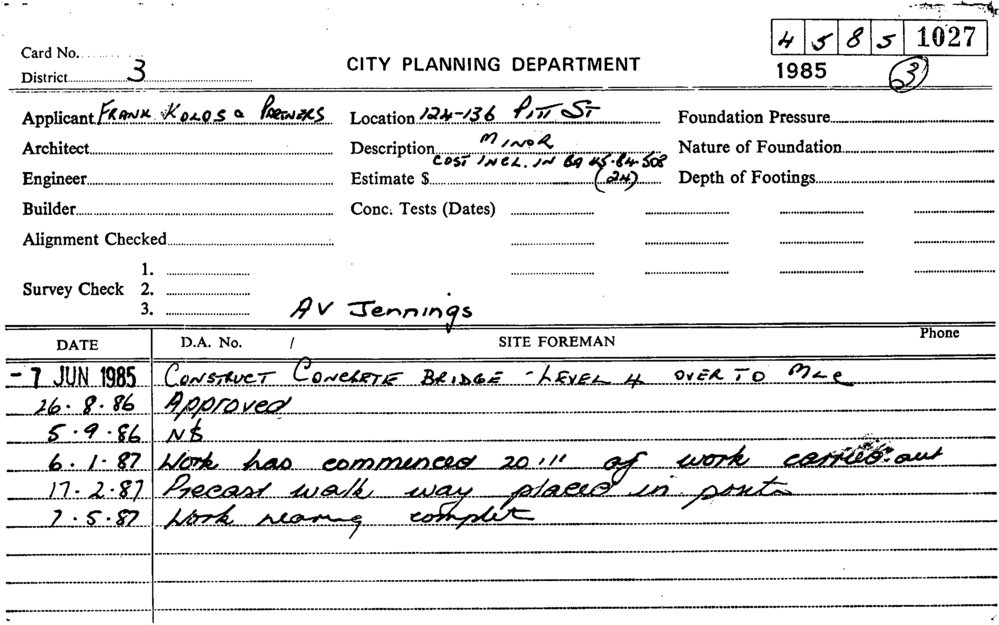 4 5 8 5 1027
Card No.
District 3
CITY PLANNING DEPARTMENT
1985 3
Applicant FRANK KOLOS & PARTNERS Location 124-136 PITT ST Foundation Pressure
Architect Description MINOR Nature of Foundation
COST INCL. IN BA 45.84.508
Engineer Estimate $ (24) Depth of Footings
Builder Conc. Tests (Dates)
Alignment Checked
1.
Survey Check 2.
3. AV Jennings
DATE D.A. No. / SITE FOREMAN Phone
-7 JUN 1985 CONSTRUCT CONCRETE BRIDGE - LEVEL 4 OVER TO MLC
26.8.86 Approved
5.9.86 NS
6.1.87 Work has commenced 20 of work carried out
17.2.87 Precast walk way placed in
7.5.87 Work nearing complet